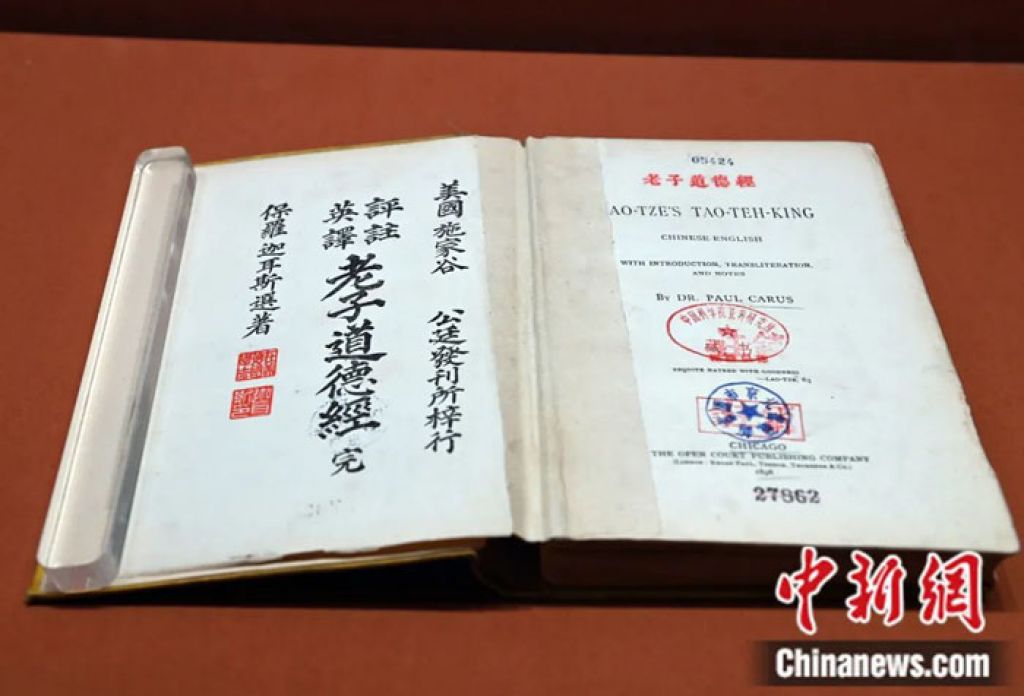 美國施家谷 公廷發刊所梓行
評註
英譯
老子道德經 完
保羅迦耳斯選著
05424
老子道德經
AO-TZE'S TAO-TEH-KING
CHINESE-ENGLISH
WITH INTRODUCTION, TRANSLITERATION,
AND NOTES
BY DR. PAUL CARUS
藏書
REQUITE HATRED WITH GOODNESS
—LAO-TZE, 63
CHICAGO
THE OPEN COURT PUBLISHING COMPANY
(LONDON: KEGAN PAUL, TRENCH, TRUEBNER & CO.)
1898
27862
中新網
Chinanews.com